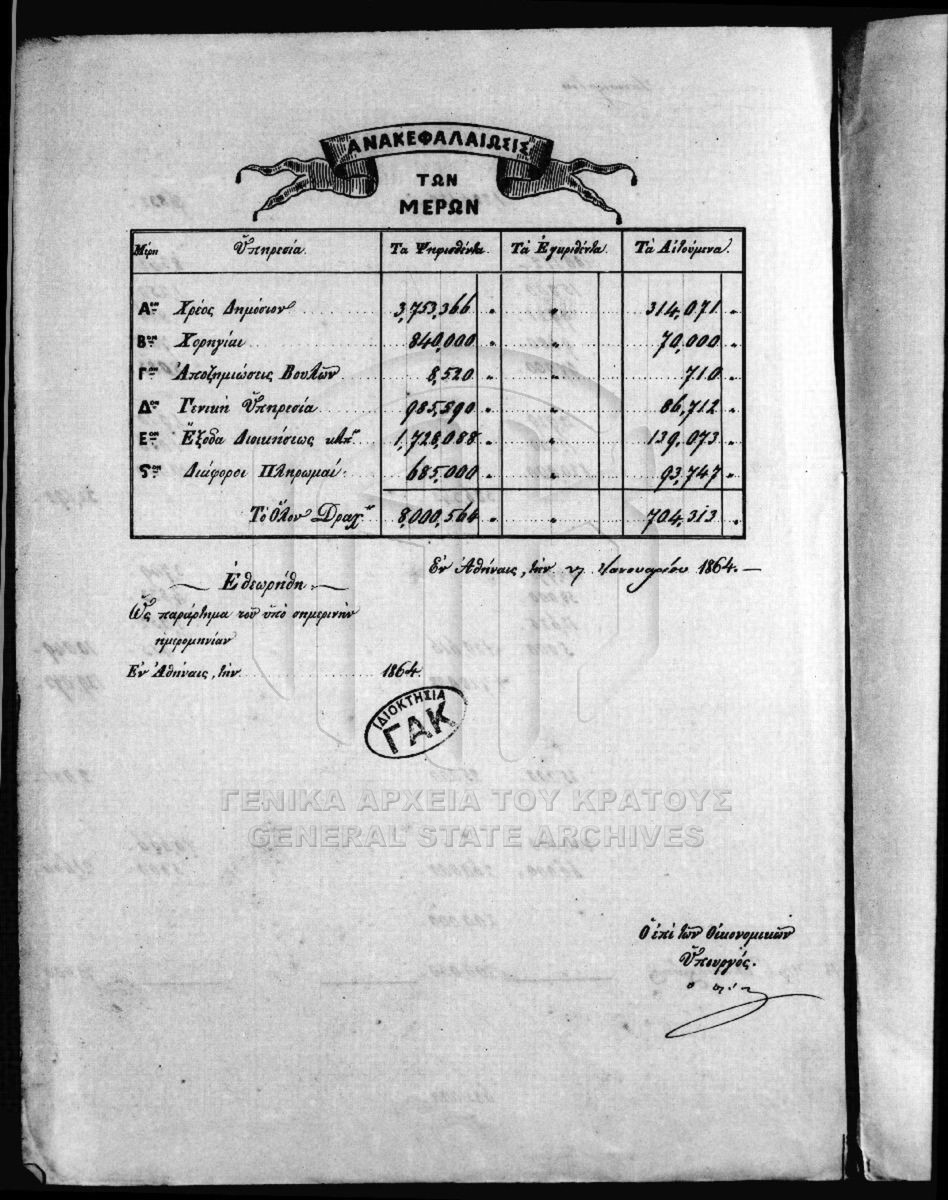 ΑΝΑΚΕΦΑΛΑΙΩΣΙΣ
ΤΩΝ
ΜΕΡΩΝ
Μέρη Ὑπηρεσία. Τα Ψηφισθέντα. Τὰ Ἐγκριθέντα. Τὰ Αἰτούμενα.
Αον Χρέος Δημόσιον 3,753,366 „ „ 314,071 „
Βον Χορηγίαι 840,000 „ „ 70,000 „
Γον Ἀποζημιώσεις Βουλῶν 8,520 „ „ 710 „
Δον Γενικὴ Ὑπηρεσία 985,590 „ „ 86,712 „
Εον Ἔξοδα Διοικήσεως κλπ. 1,728,088 „ „ 139,073 „
Ϛον Διάφοροι Πληρωμαί 685,000 „ „ 93,747 „
Τὸ Ὅλον Δραχ. 8,000,564 „ „ 704,313 „
Ἐν Ἀθήναις, τὴν Ἰανουαρίου 1864.
Ἐθεωρήθη
Ὡς παράρτημα τοῦ ὑπὸ σημερινὴν
ἡμερομηνίαν
Ἐν Ἀθήναις, τὴν 1864.
ΙΔΙΟΚΤΗΣΙΑ
ΓΑΚ
ΓΕΝΙΚΑ ΑΡΧΕΙΑ ΤΟΥ ΚΡΑΤΟΥΣ
GENERAL STATE ARCHIVES
Ὁ ἐπὶ τῶν Οἰκονομικῶν
Ὑπουργός.